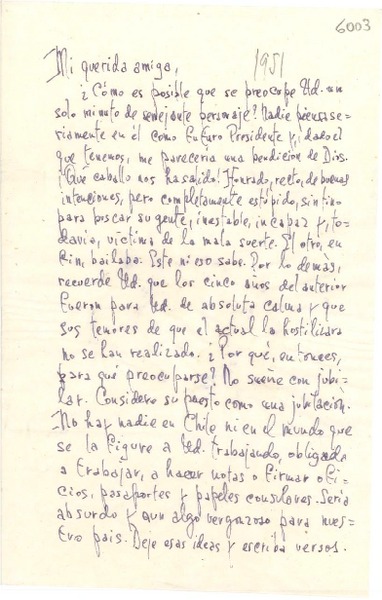 6003
1951
Mi querida amiga,
¿Cómo es posible que se preocupe Ud. un
solo minuto de semejante personaje? Nadie piensa se-
riamente en él como futuro Presidente y, dado el
que tenemos, me parecería una bendición de Dios.
¡Qué caballo nos ha salido! Honrado, recto, de buenas
intenciones, pero completamente estúpido, sin tino
para buscar su gente, inestable, incapaz y, to-
davía, víctima de la mala suerte. El otro, en
fin, bailaba. Este ni eso sabe. Por lo demás,
recuerde Ud. que los cinco años del anterior
fueron para Ud. de absoluta calma y que
sus temores de que el actual la hostilizara
no se han realizado. ¿Por qué, entonces,
para qué preocuparse? No sueñe con jubi-
lar. Considere su puesto como una jubilación.
No hay nadie en Chile ni en el mundo que
se la figure a Ud. trabajando, obligada
a trabajar, a hacer notas o firmar ofi-
cios, pasaportes y papeles consulares. Sería
absurdo y aun algo vergonzoso para nues-
tro país. Deje esas ideas y escriba versos.